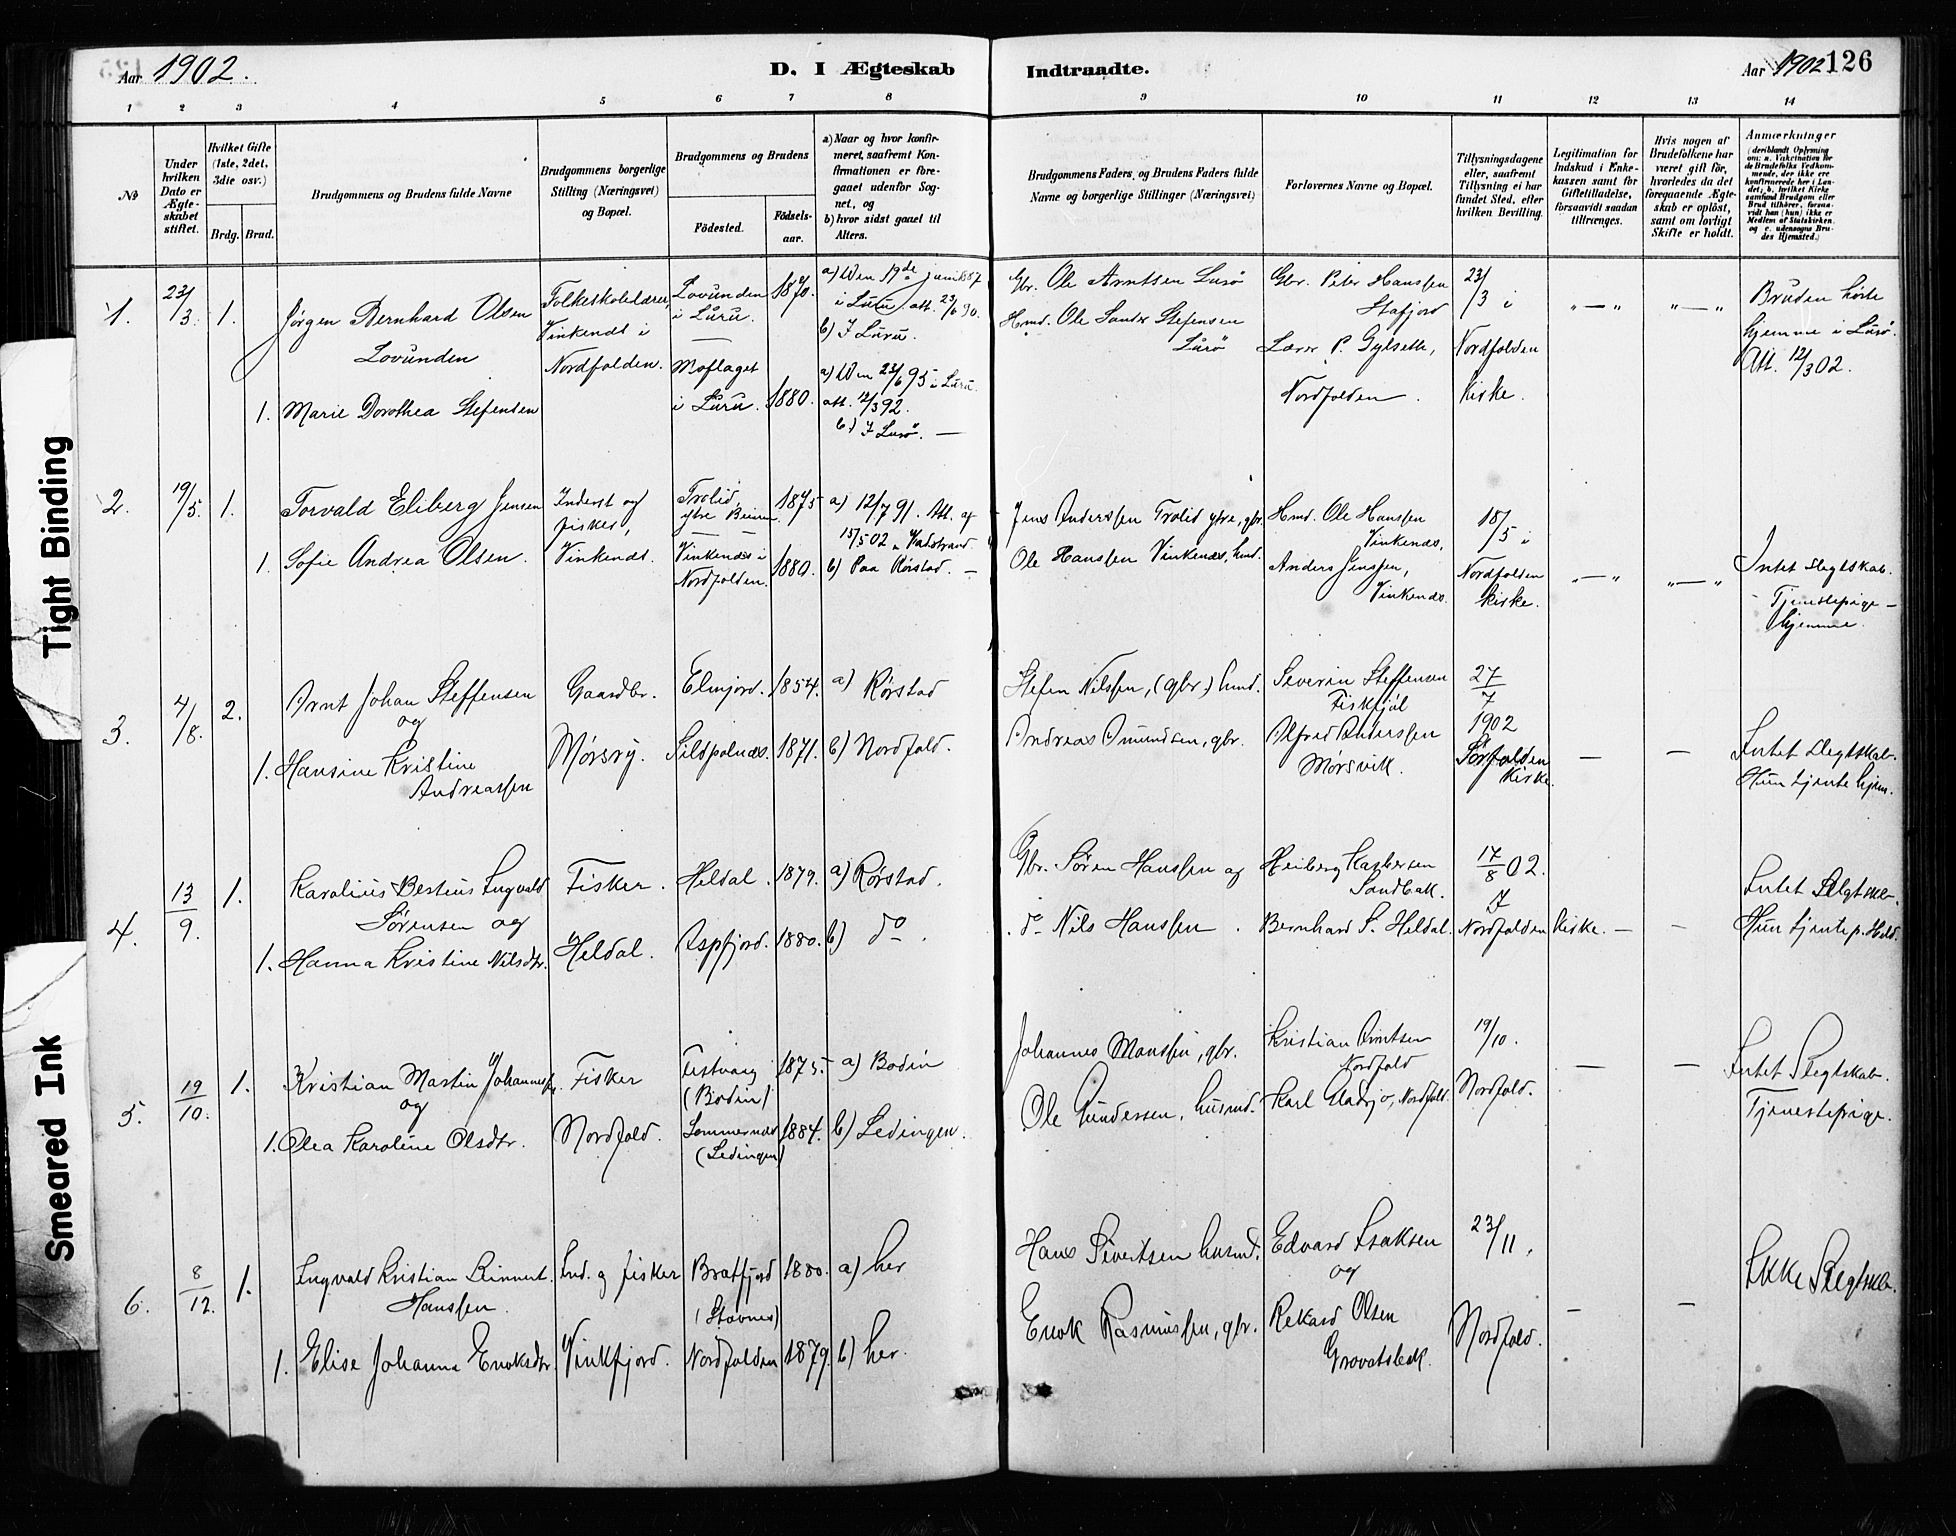 Aar 1902.
D. I Ægteskab
Indtraadte.
Aar 1902 126
1 2 3 4 5 6 7 8 9 10 11 12 13 14
No
Under hvilken Dato er Ægteskabet stiftet.
Hvilket Gifte (1ste, 2det, 3die osv.)
Brdg. Brud.
Brudgommens og Brudens fulde Navne
Brudgommens borgerlige Stilling (Næringsvei) og Bopæl.
Brudgommens og Brudens
Fødested.
Fødselsaar.
a) Naar og hvor konfirmeret, saafremt Konfirmationen er foregaaet udenfor Sognet, og
b) hvor sidst gaaet til Alters.
Brudgommens Faders, og Brudens Faders fulde Navne og borgerlige Stillinger (Næringsvei)
Forlovernes Navne og Bopæl.
Tillysningsdagene eller, saafremt Tillysning ei har fundet Sted, efter hvilken Bevilling.
Legitimation for Indskud i Enkekassen samt for Giftetilladelse, forsaavidt saadan tiltrænges.
Hvis nogen af Brudefolkene har været gift før, hvorledes da det foregaaende Ægteskab er opløst, samt om lovligt Skifte er holdt.
Anmærkninger
1. 23/3. 1.
Jørgen Bernhard Olsen
Lovunden
1. Marie Dorothea Stefensen
Folkeskolelærer,
Vinkenes i
Nordfolden.
Lovunden
i Luru.
1870.
Moflaget
i Luru.
1880.
a) Den 19de juni 1887
i Luru. att. 23/6 90.
b) I Luru.
a) Den 23/6 95 i Luru.
att. 12/3 92.
b) I Lurø.
Gbr. Ole Arntsen Lurø
Hmd. Ole Sander Stefensen
Lurø
Gbr. Peter Hanssen
Stafjord
Lærer P. Gylseth,
Nordfolden.
23/3 i
Nordfolden
Kirke.
" — "
" — "
Bruden hørte
hjemme i Lurø.
Att. 12/3 02.
2. 19/5. 1.
Torvald Eliberg Jensen
1. Sofie Andrea Olsen.
Inderst og
fisker,
Vinkenes.
Trolid
ytre
1875
Vinkenes i
Nordfolden.
1880.
a) 12/7 91. Att. af
15/5 02
b) Paa Rørstad. —
Jens Anderssen Trolid ytre, gbr.
Ole Hanssen Vinkenes, hmd.
Hmd. Ole Hanssen
Vinkenes,
Anders Jenssen,
Vinkenes.
18/5 i
Nordfolden
Kirke.
" — "
" — "
Intet slegtskab.
Tjenestepige
hjemme.
3. 4/8. 2.
Arnt Johan Steffensen
og
1. Hansine Kristine
Andreassen
Gaardbr.
Mørsry.
Elvfjord. 1854.
Sildpolnes. 1871.
a) Rørstad
b) Nordfold.
Stefen Nilssen, (gbr.) hmd.
Andreas Amundsen, gbr.
Severin Steffensen
Fiskfjøl
Alfred Anderssen
Mørsvik.
27/7
1902
Sørfolden
Kirke
— —
Intet Slegtskab.
Hun tjente hjem.
4. 13/9. 1.
Karolius Bertius Ingvald
Sørensen og
1. Hanna Kristine Nilsdtr.
Fisker.
Heldal.
Heldal. 1879.
Aspfjord. 1880.
a) Rørstad.
b) do.
Gbr. Søren Hanssen og
do Nils Hanssen.
Heiberg Kaspersen
Sandbak.
Bernhard S. Heldal.
17/8 02.
I
Nordfolden Kirke. — —
Intet Slegtskab.
Hun tjente p. Held.
5. 19/10. 1.
Kristian Martin Johannessen
og
1. Olea Karoline Olsdtr.
Fisker
Nordfold.
Festvaag
(Bodin)
1875
Sommernes
(Lødingen)
1884.
a) Bodin
b) Lødingen.
Johannes Monssen, gbr.
Ole Gundersen, husmd.
Kristian Arntsen
Nordfold
Karl Madsø, Nordfold.
19/10.
Nordfold.
— —
Intet Slegtskab.
Tjenestepige.
6. 8/12. 1.
Ingvald Kristian Rinnert
Hanssen.
1. Elise Johanna Enoksdtr.
Ind. og fisker
Vinkfjord.
Bratfjord
(Stavnes)
1880.
Nordfolden 1879.
a) her
b) her.
Hans Sivertsen husmd.
Enok Rasmussen, gbr.
Edvard Isaksen
og
Rikard Olsen
Grovatsbak.
23/11.
Nordfold.
— —
Ikke Slegtskab.
Tight Binding
Smeared Ink